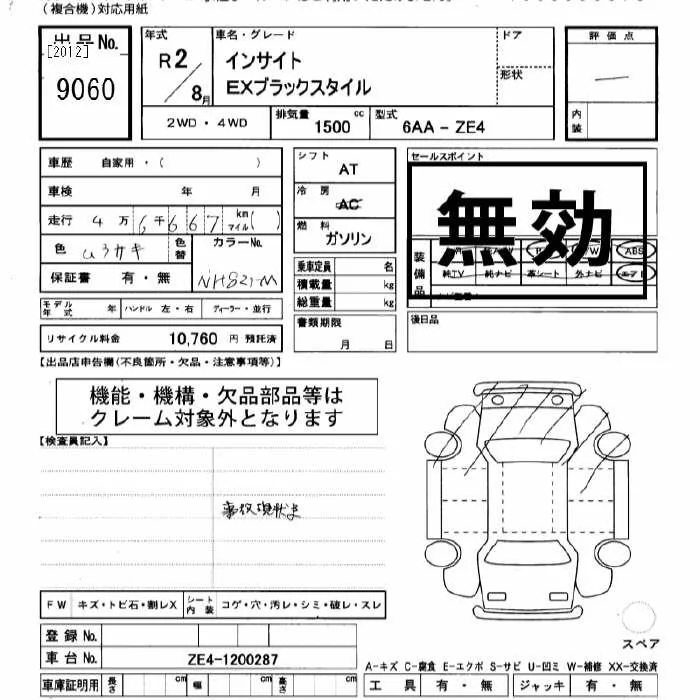 (複合機)対応用紙
出品No.
[2012]
9060
年式
R2/8月
車名・グレード
インサイト
EXブラックスタイル
ドア
形状
評価点
内装
2WD・4WD
排気量 1500 cc
型式 6AA-ZE4
車歴 自家用・( )
車検 年 月
走行 4万6千667 km マイル( )
色
色替
カラーNo.
NH821-M
保証書 有・無
モデル年式 年 ハンドル 左・右 ディーラー・並行
リサイクル料金 10,760 円 預託済
シフト AT
冷房 AC
燃料 ガソリン
乗車定員 名
積載量 kg
総重量 kg
書類期限
月 日
セールスポイント
無効
装備品
ABS
純TV 純ナビ 革シート 外ナビ エアB
後日品
【出品店申告欄(不良箇所・欠品・注意事項等)】
機能・機構・欠品部品等は
クレーム対象外となります
【検査員記入】
事故現状ま
FW キズ・トビ石・割レX シート内装 コゲ・穴・汚レ・シミ・破レ・スレ
登録No.
車台No. ZE4-1200287
車庫証明用 長さ cm 幅 cm 高さ cm
スペア
A-キズ C-腐食 E-エクボ S-サビ U-凹ミ W-補修 XX-交換済
工具 有・無 ジャッキ 有・無